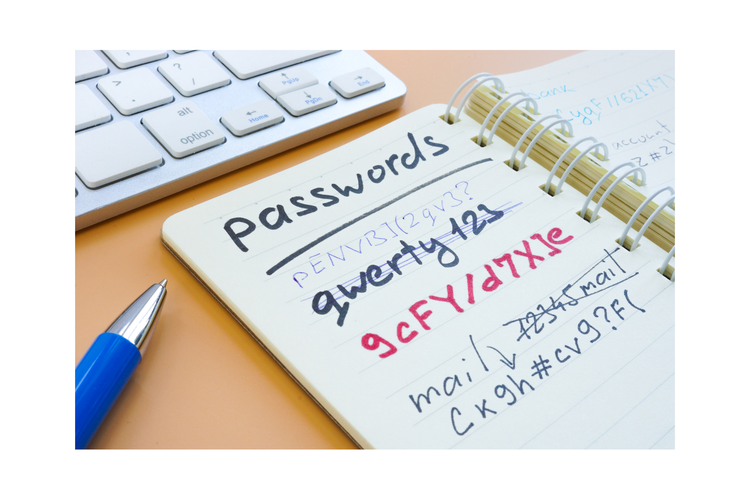 alt
option
PgUp
PgDn
Home
End
passwords
PENVB](2qv]?
qwerty123
gcFY/d7X]e
12345mail
mail
(kgh#cvg?F(
bank
account